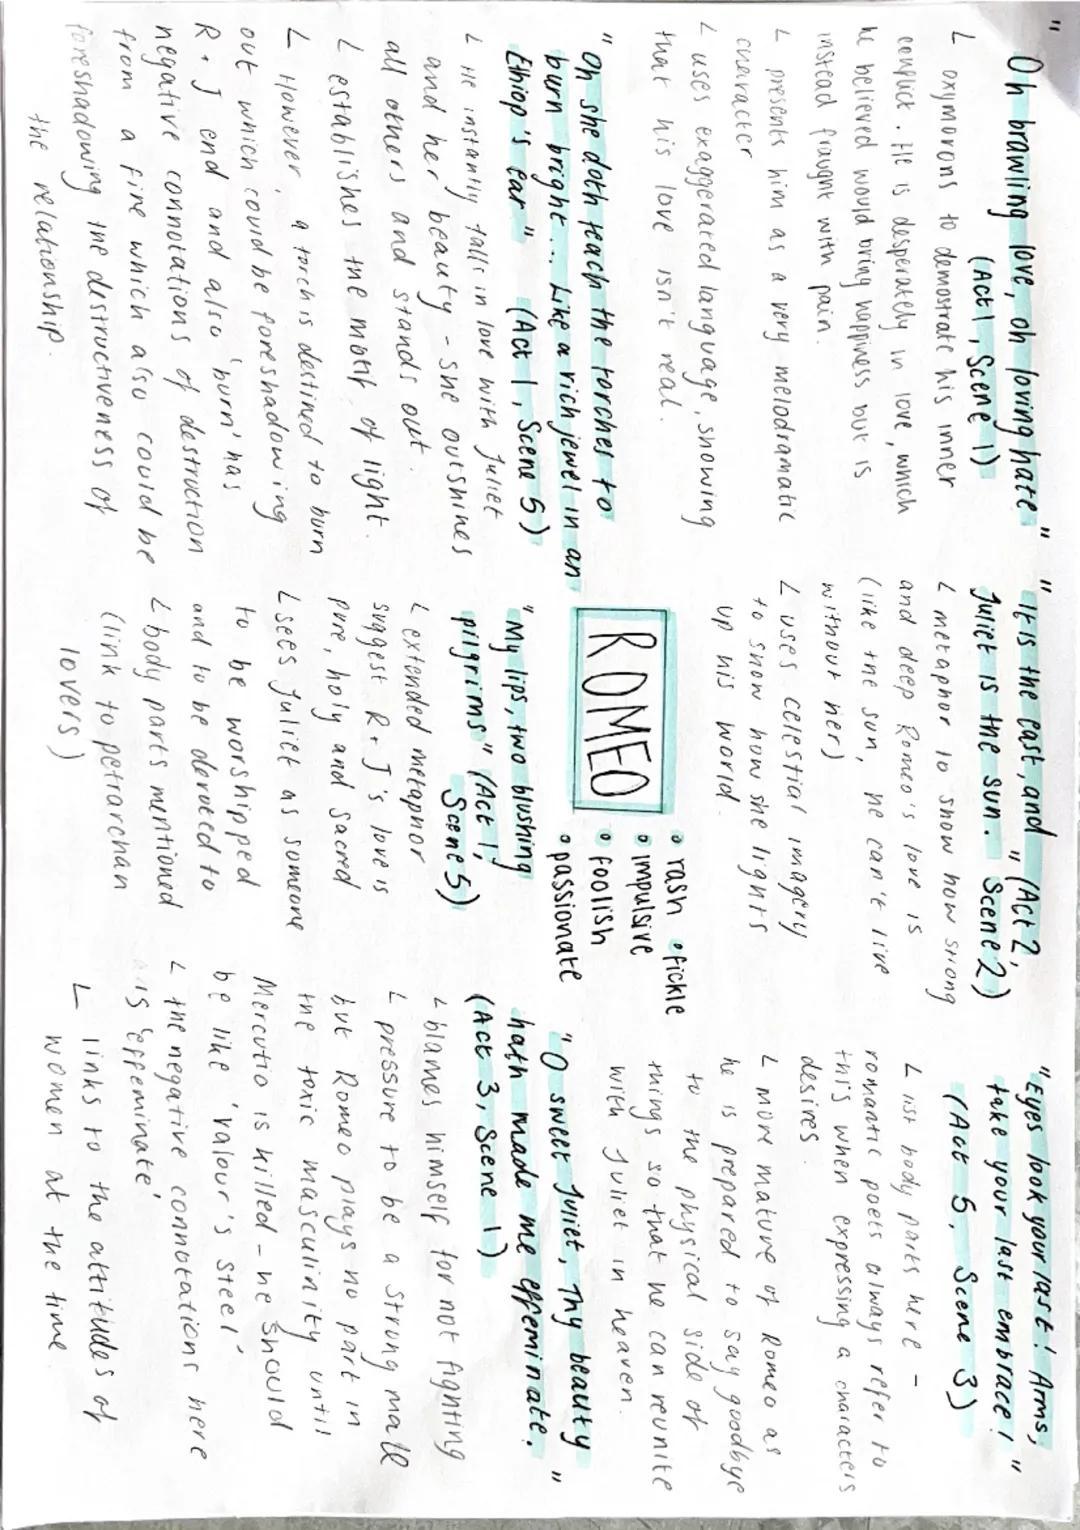 "Oh brawling love, oh loving hate"
(Act 1, Scene 1)
L oxymorons to demostrate his inner
conflict. He is desperately in love, which
he believed would bring happiness but is
instead fraught with pain.
L presents him as a very melodramatic
character
L uses exaggerated language, showing
that his love isn't real.
"Oh she doth teach the torches to
burn bright... Like a rich jewel in an
Ethiop's ear" (Act 1, Scene 5)
L He instantly falls in love with Juliet
and her beauty - she outshines
all others and stands out.
L establishes the motif of light.
L However, a torch is destined to burn
out which could be foreshadowing
R+J end and also 'burn' has
negative connotations of destruction
from a fire which also could be
foreshadowing the destructiveness of
the relationship.
"It is the east, and
Juliet is the sun." (Act 2, Scene 2)
L metaphor to show how strong
and deep Romeo's love is
(like the sun, he can't live
without her)
L uses celestial imagery
to show how she lights
up his world.
ROMEO
• rash • fickle
• impulsive
• foolish
• passionate
"My lips, two blushing
pilgrims" (Act 1, Scene 5)
L extended metaphor
suggest R+J's love is
pure, holy and sacred
L sees Juliet as someone
to be worshipped
and to be devoted to
L body parts mentioned
(link to petrarchan
lovers)
"Eyes look your last! Arms,
take your last embrace!"
(Act 5, Scene 3)
L list body parts here -
romantic poets always refer to
this when expressing a characters
desires.
L more mature of Romeo as
he is prepared to say goodbye
to the physical side of
things so that he can reunite
with Juliet in heaven.
"O sweet Juliet, Thy beauty
hath made me effeminate."
(Act 3, Scene 1)
L blames himself for not fighting
L pressure to be a strong male
but Romeo plays no part in
the toxic masculinity until
Mercutio is killed - he should
be like 'valour's steel'
L the negative connotations here
is 'effeminate'
L links to the attitudes of
women at the time